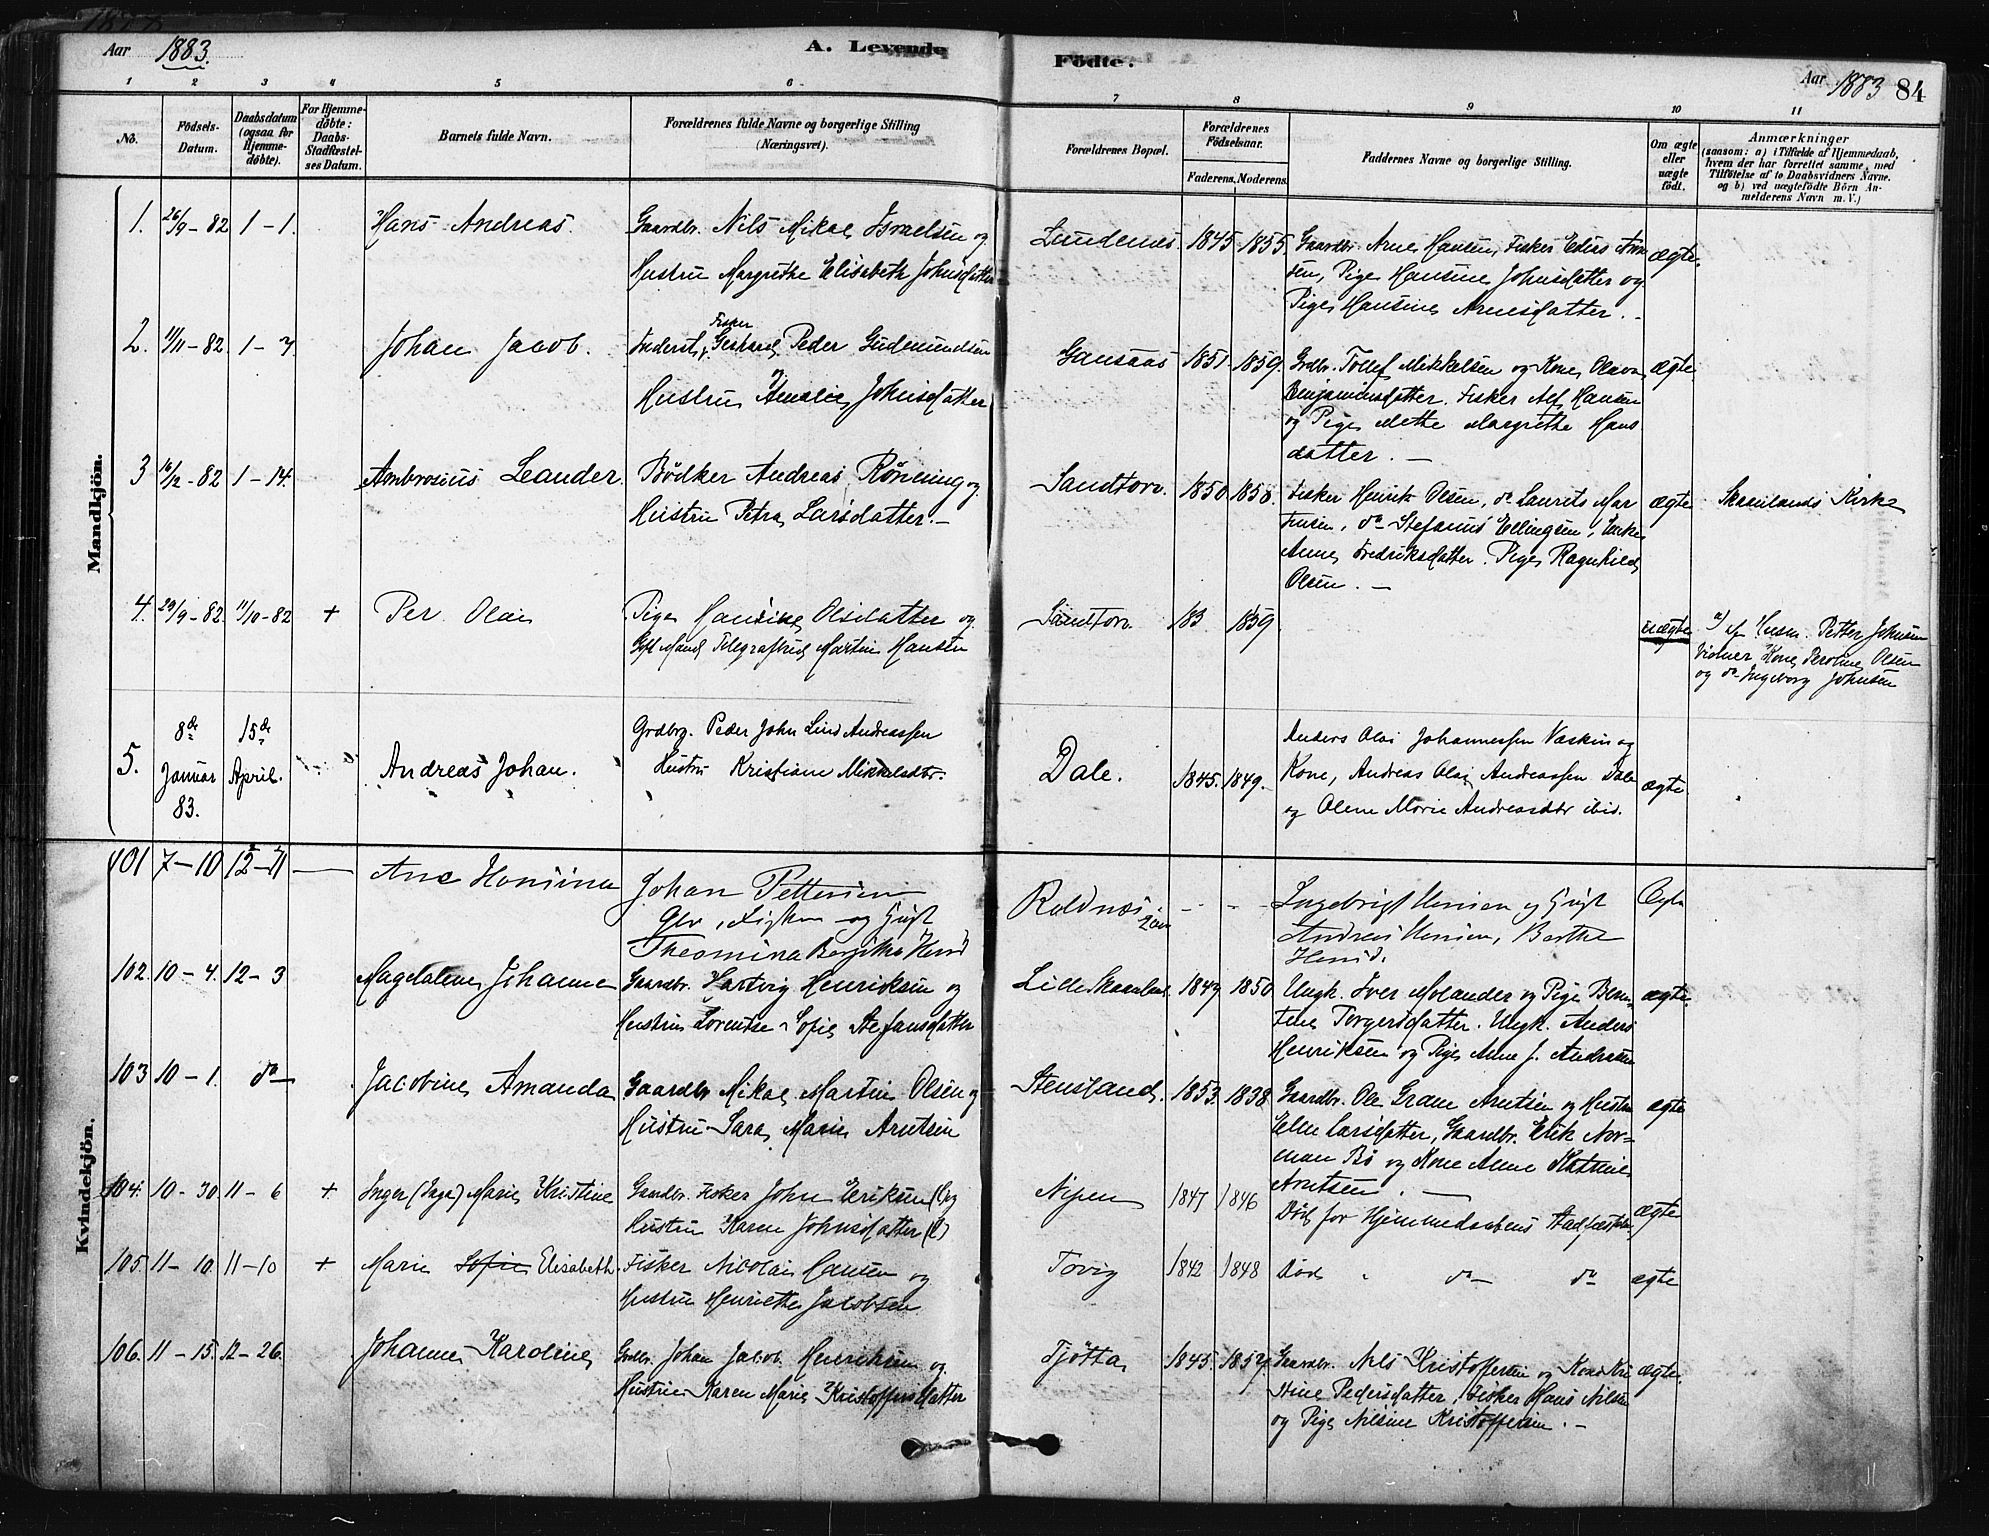 Aar 1883.
A. Levende
Fødte.
Aar 1883 84
1 2 3 4 5 6 7 8 9 10 11
No.
Födsels-Datum.
Daabsdatum (ogsaa for Hjemme-döbte).
For Hjemme-döbte: Daabs-Stadfæstel-ses Datum.
Barnets fulde Navn.
Forældrenes fulde Navne og borgerlige Stilling (Næringsvei).
Forældrenes Bopæl.
Forældrenes Födselsaar.
Faderens. Moderens.
Faddernes Navne og borgerlige Stilling.
Om ægte eller uægte födt.
Anmærkninger
(saasom: a) i Tilfælde af Hjemmedaab,
hvem der har forrettet samme, med
Tilföielse af to Daabsvidners Navne.
og b) ved uægtefödte Börn An-
melderens Navn m. V.)
Mandkjön.
1. 26/9-82 1-1. Hans Andreas. Gaardbr. Nils Mikal Israelsen og
Hustru Margrethe Elisabeth Johnsdatter
Lundenes 1845 1855 Gaardbr. Arne Hansen, Fisker Edias Arn
sen, Pige Hansine Johnsdatter og
Pige Hansine Arnesdatter.
ægte.
2. 11/11-82. 1-7. Johan Jacob. Inderst, Fisker Gerhard Peder Gudmundsen
og
Hustru Amalie Johnsdatter
Gausaas 1851. 1859. Grdbr. Tollef Mikkelsen og Kone Olava
Benjaminsdatter. Fisker Alf Hansen
og Pige Mette Margrethe Hans
datter. —
ægte
3 16/12-82 1-14. Ambrosius Leander. Bødker Andreas Rønning og
Hustru Petra Larsdatter. —
Sandtorv. 1850 1858. Fisker Henrik Olsen, do Laurits Mar
tinsen, do Stefanus Ellingsen, Enke
Anne Fredriksdatter. Pige Ragnhild
Olsen. —
ægte Skaanlands Kirke
4. 29/9-82. 11/10-82 + Per Olai Pige Hansine Olsdatter og
Gift Mand Telegrafbud Martin Hansen
Sandtorv. 183 1859
uægte
a) af Husm. Petter Johnsen
Vidner Kone Peroline Olsen
og do Ingeborg Johnsen
5. 8de Januar 83. 15de April. Andreas Johan. Grdbrg. Peder John Lind Andreassen
Hustru Kristiane Mikkelsdtr.
Dale. 1845. 1849. Anders Olai Johannessen Væskin og
Kone, Andreas Olai Andreassen Dale
og Olene Marie Andreasdtr ibid.
ægte.
Kvindekjön.
101 7-10 12-11 — Ane Hansina Johan Pettersen
Gbr, Fisker og Gift
Theomina Bergitha Hensd
Roldnæs - - - - Ingebrigt Hensen og Gift
Andreas Hensen, Berthe
Hensd.
Ægte
102. 10-4. 12-3 Magdalene Johanne Gaardbr. Hartvig Henriksen og
Hustru Lorentse Sofie Stefansdatter
Lille Skaanland. 1847 1850 Ungk. Iver Molander og Pige Bern
tine Torgersdatter. Ungk. Anders
Henriksen og Pige Anne J. Andersen
ægte.
103 10-1. do — Jacobine Amanda Gaardbr Mikal Martin Olsen og
Hustru Sara Marie Arntsen
Stensland. 1853. 1838. Gaardbr. Ole Grane Arntsen og Hustru
Ellen Larsdatter, Gaardbr. Erik Nor=
man Bö og Kone Anne Katrine
Arntsen. —
ægte
104. 10-30 11-6 + Inger (Inga) Marie Kristine Gaardbr. Fisker John Eriksen (L) og
Hustru Karen Johnsdatter (L)
Nipen 1847 1846 Død før Hjemmedaabens Stadfæstelse
ægte
105. 11-10. 11-10 + Marie Sofie Elisabeth. Fisker Nicolai Hansen og
Hustru Henriette Jacobsen
Tovig 1842 1848 Død do — do ægte
106. 11-15. 12-26. Johanne Karoline Grdbr. Johan Jacob Henriksen og
Hustru Karen Marie Kristoffersdatter
Tjøtta 1845. 1857. Gaardbr. Nils Kristoffersen og Kone Kri
stine Pedersdatter, Fisker Hans Nilsen
og Pige Nilsine Kristoffersen. —
ægte.